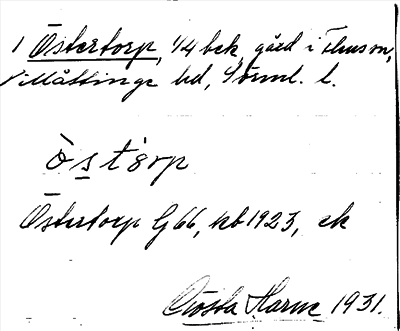 1 Östertorp, 1/4 bek, gård i Flens sn,
Villåttinge hd, Sörml. l.
östórp
Östertorp G66, kb 1923, ek
Gösta Harne 1931.